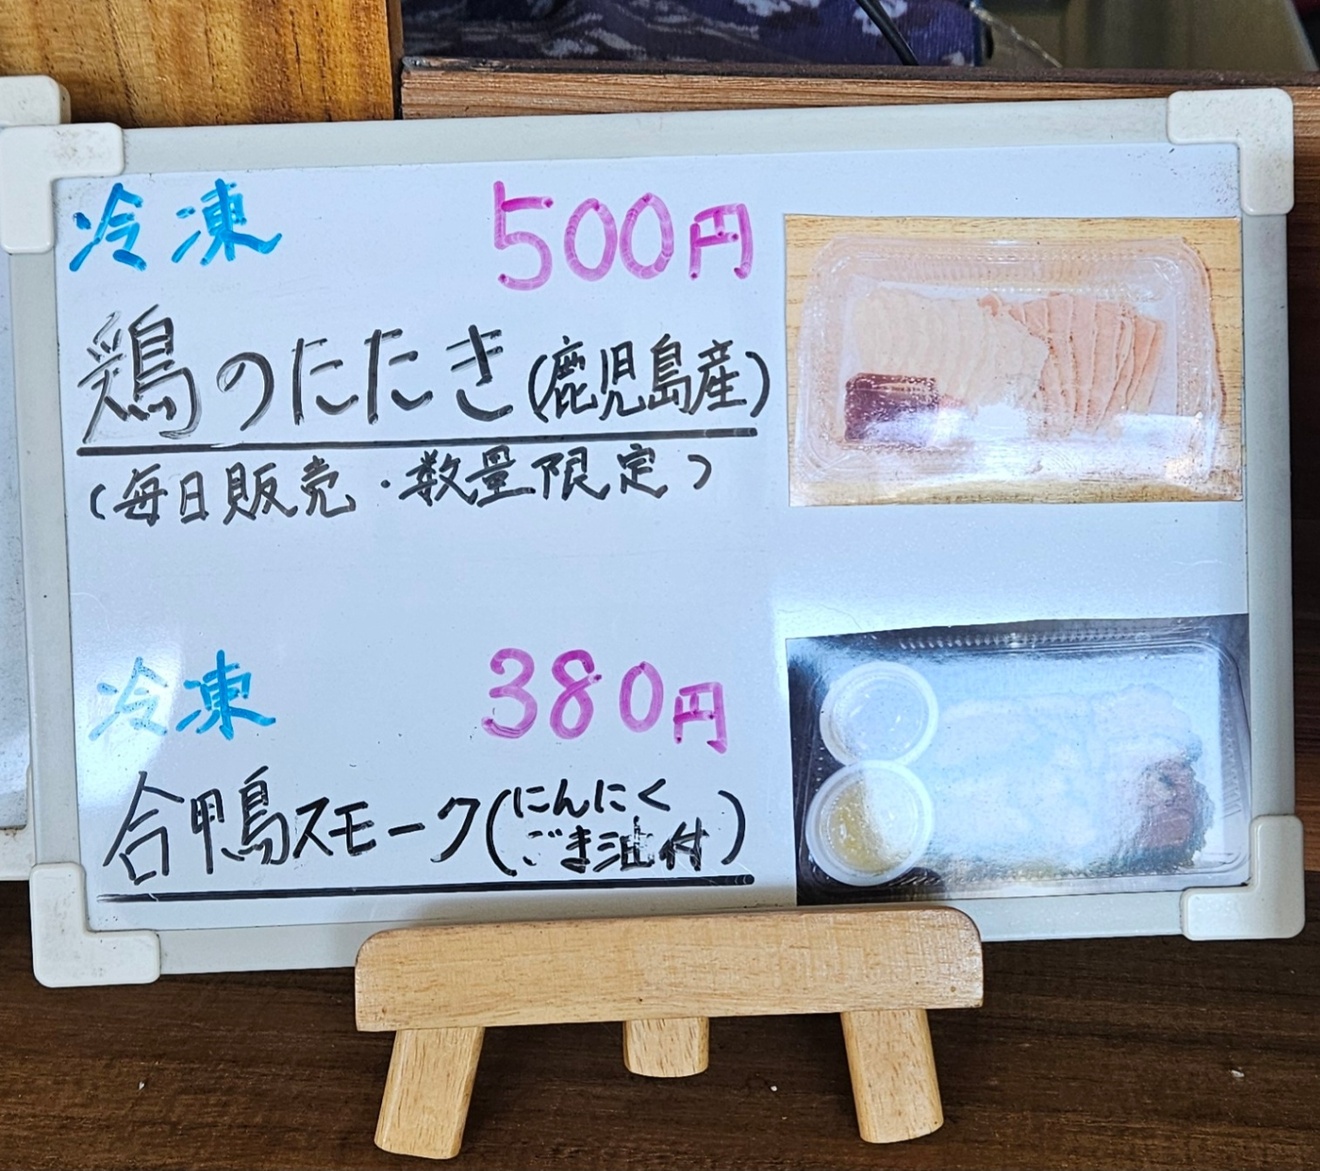 冷凍 500円
鶏のたたき(鹿児島産)
(毎日販売・数量限定)
冷凍 380円
合鴨スモーク(にんにく
ごま油付)